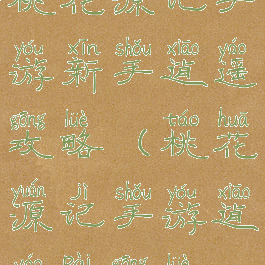 桃花源记手
yóu xīn shǒu xiāo yáo
游新手逍遥
gōng lüè táo huā
攻略（桃花
yuán jì shǒu yóu xiāo
源记手游逍